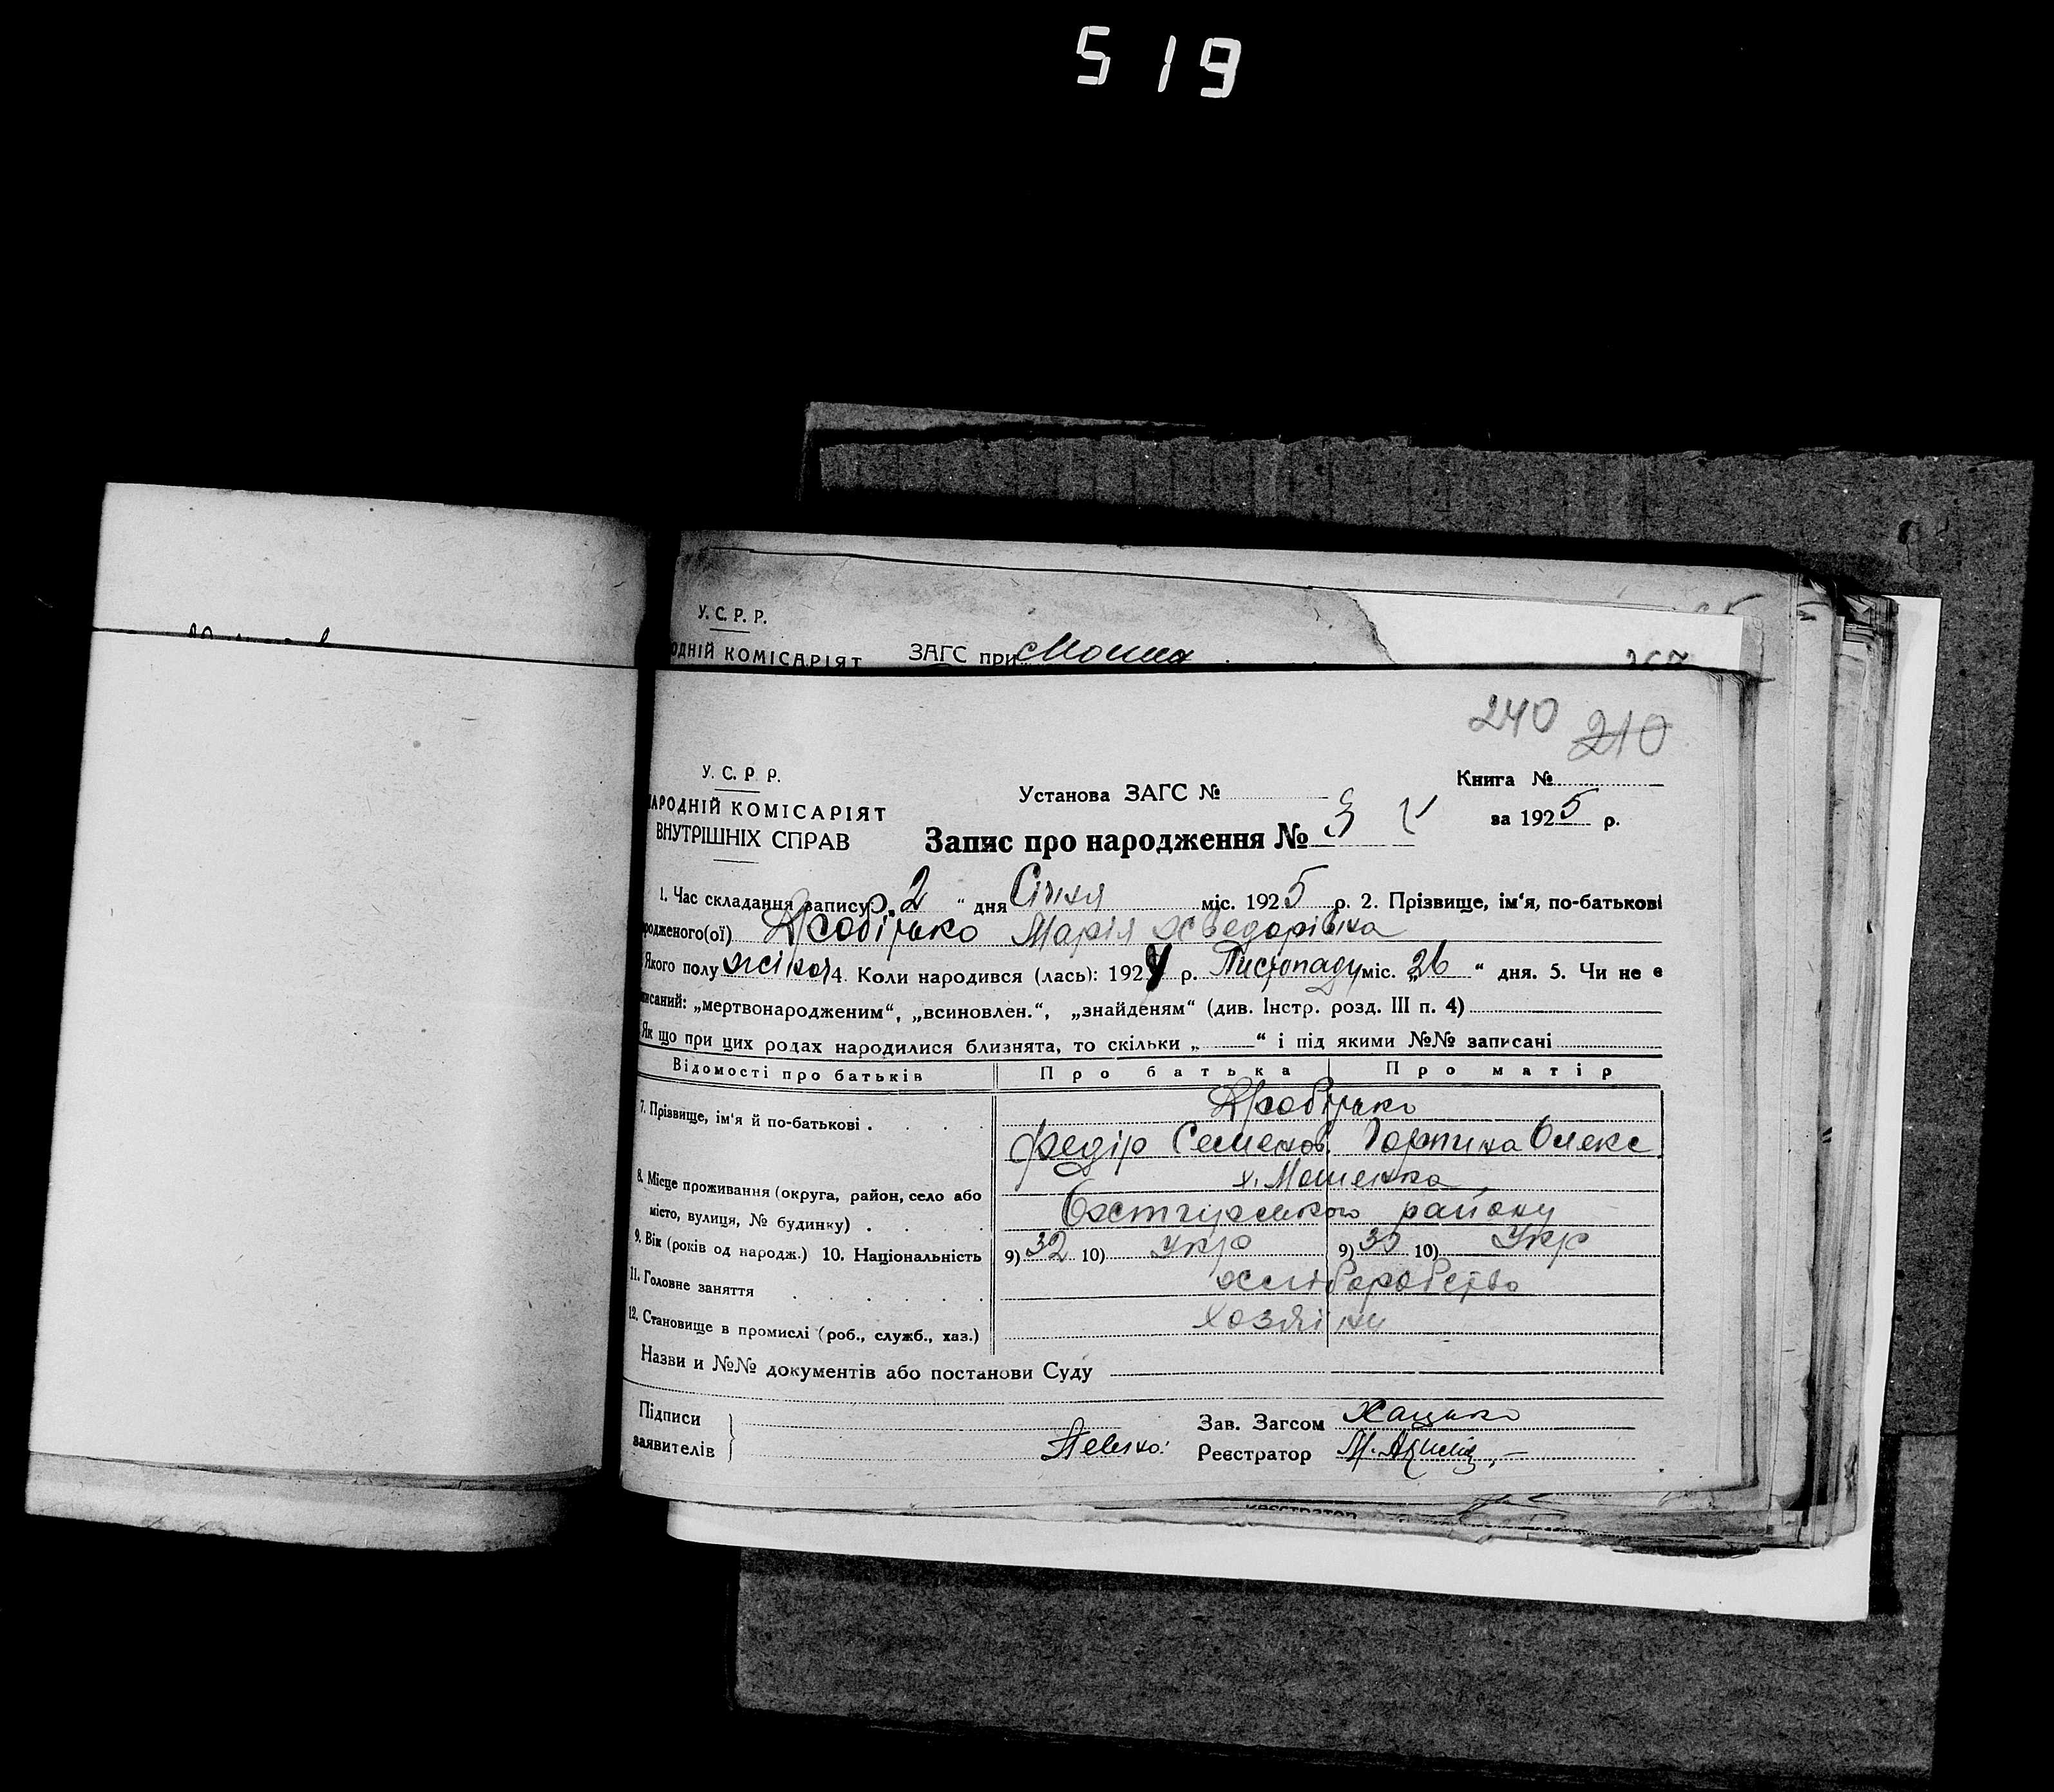 519
У. С. Р. Р.
ОДНІЙ КОМІСАРІЯТ ЗАГС при
240 210
У. С. Р. Р.
Установа ЗАГС №
Книга №
НАРОДНІЙ КОМІСАРІЯТ
за 1925 р.
ВНУТРІШНІХ СПРАВ
Запис про народження № 3
1. Час складання запису: „2“ дня Січня міс. 1925 р. 2. Прізвище, ім'я, по-батькові
родженого(ої) Марія Хведорівна
Якого полу жіноч 4. Коли народився (лась): 1924 р. Листопаду міс. „26“ дня. 5. Чи не є
писаний: „мертвонародженим“, „всиновлен.“, „знайденям“ (див. Інстр. розд. III п. 4)
Як що при цих родах народилися близнята, то скільки „ “ і під якими №№ записані
Відомості про батьків Про батька Про матір
7. Прізвище, ім'я й по-батькові
Федір Семенов. Олекс.
8. Місце проживання (округа, район, село або х. Мошенка
місто, вулиця, № будинку) району
9. Вік (років од народж.) 10. Національність 9) 32 10) Укр 9) 10) Укр
11. Головне заняття хліборобство
12. Становище в промислі (роб., служб., хаз.) хозяїни
Назви и №№ документів або постанови Суду
Підписи
заявителів
Зав. Загсом Хацько
Реєстратор М.